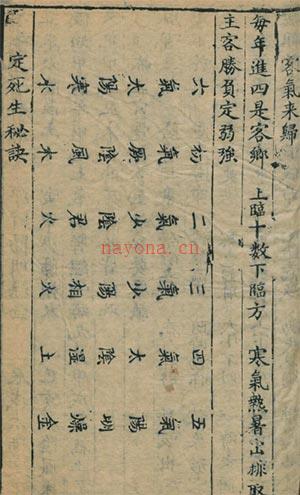 客氣来歸
每年進四是客鄉 上臨十数下臨方 寒氣熱暑宻排
主客勝負定弱強
六 初 二 三 四 五
氣 氣 氣 氣 氣 氣
太 厥 少 少 太 陽
陽 陰 陰 陽 陰 明
寒 風 君 相 濕 燥
水 木 火 火 土 金
定死生秘訣
nayona.cn